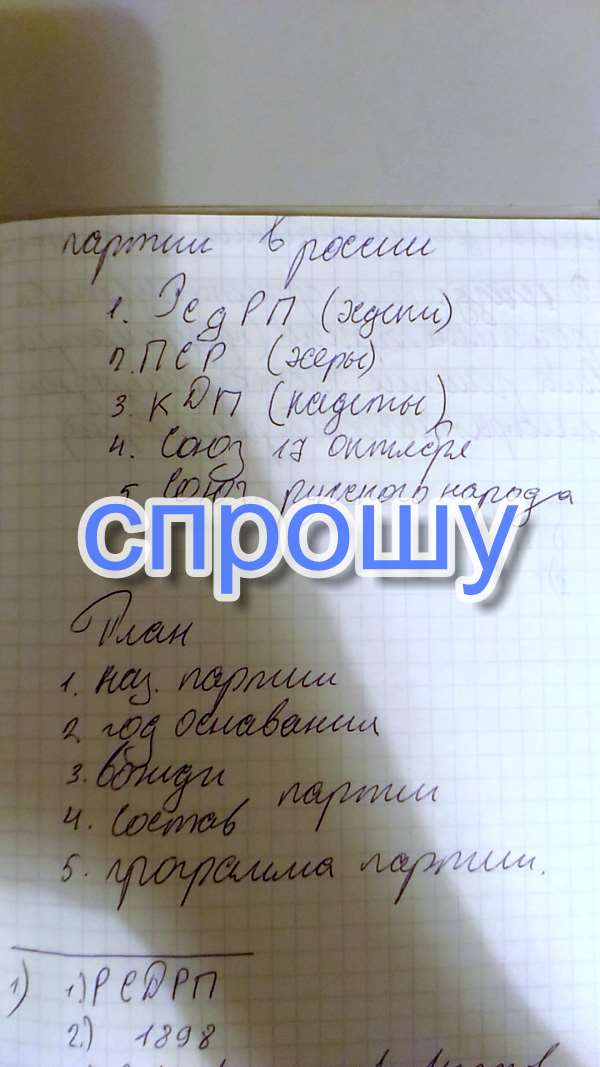 партии в россии
1. РСДРП (эсдеки)
2. ПСР (эсеры)
3. КДП (кадеты)
4. Союз 17 октября
5. Союз русского народа
спрошу
План
1. наз. партии
2. год основания
3. вожди партии
4. состав
5. программа партии.
1) 1) РСДРП
2.) 1898